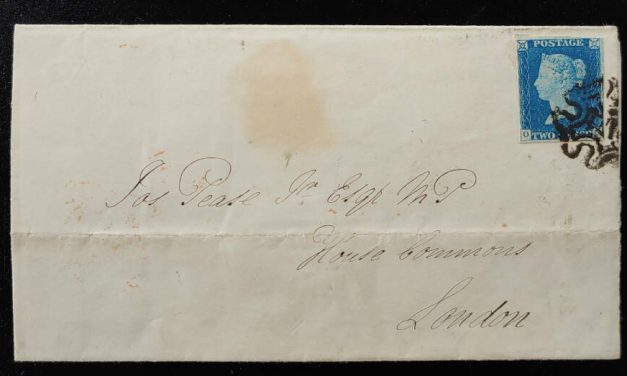 POSTAGE
TWO
O
Jos Pease Jr Esqr MP
House Commons
London